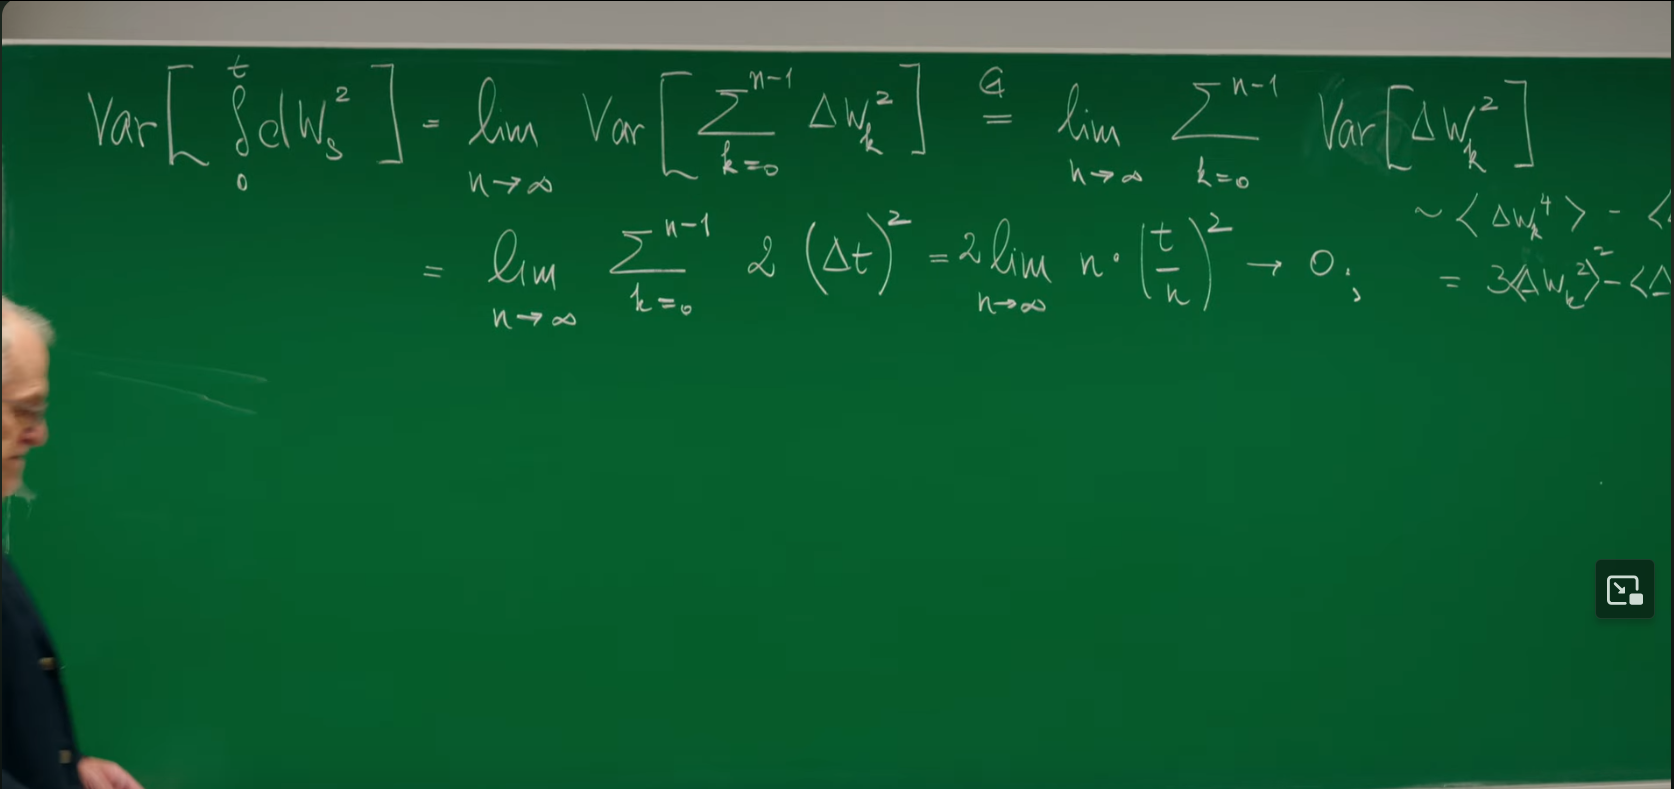 Var[∫₀ᵗ dWₛ²] = lim_{n→∞} Var[∑_{k=0}^{n-1} ΔW_k²] =^{G} lim_{n→∞} ∑_{k=0}^{n-1} Var[ΔW_k²]
~ ⟨ΔW_k⁴⟩ - ⟨
= lim_{n→∞} ∑_{k=0}^{n-1} 2 (Δt)² = 2 lim_{n→∞} n · (t/n)² → 0;
= 3⟨ΔW_k²⟩² - ⟨Δ